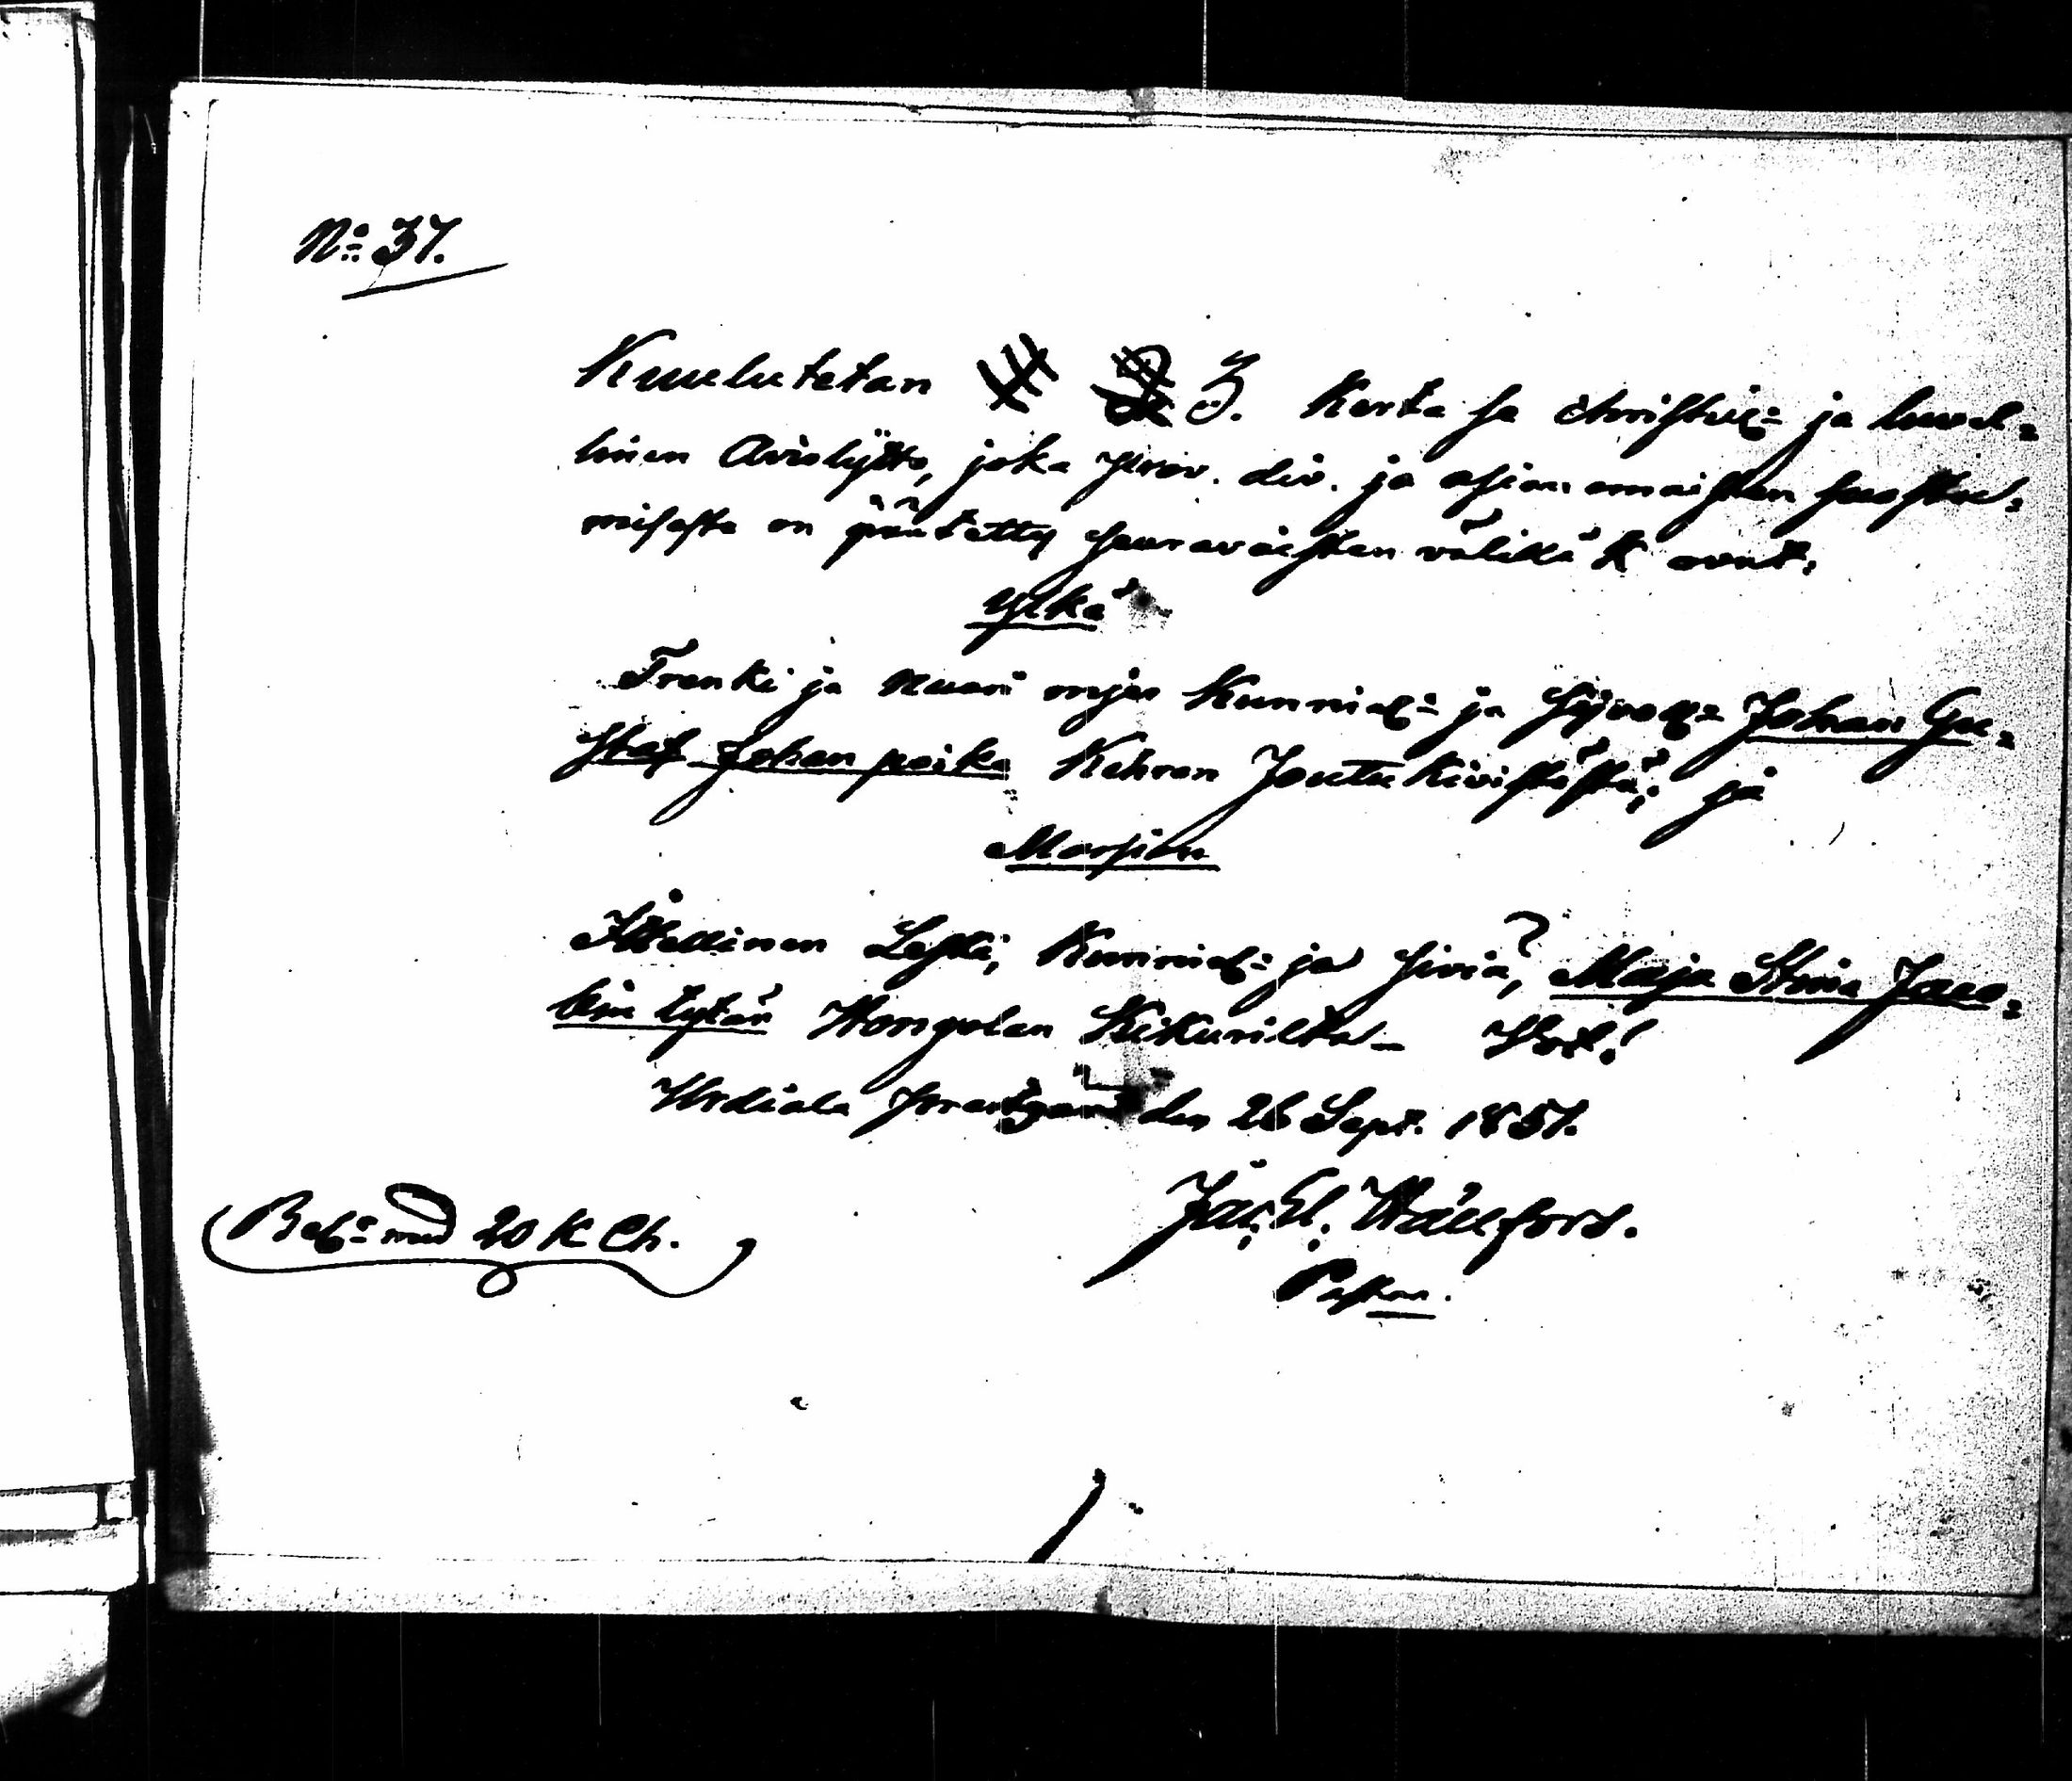 No 37.
Kuulutetan 3. Kerta sa christil: ja luval=
linen Avioliitto, joka prov. div. ja asian omaisten suostu=
misesta on päätetty seuravaisten välillä k ovat;
Ylkä
Trenki ja nuori mjes Kunnial: ja Sijvol: Johan Gu=
staf Johan poika Kehron Joutu Kivistöstä; ja
Morsian
Itellinen Leski, Kunnial: ja Siviä, Maja Stina Jaco=
bin tytär Hongolan Kikurilta_
Urdiala prestgård den 26 Sept. 1857.
Jac. El. Wallfors.
Pastor.
Bet: med 20 K Ch.